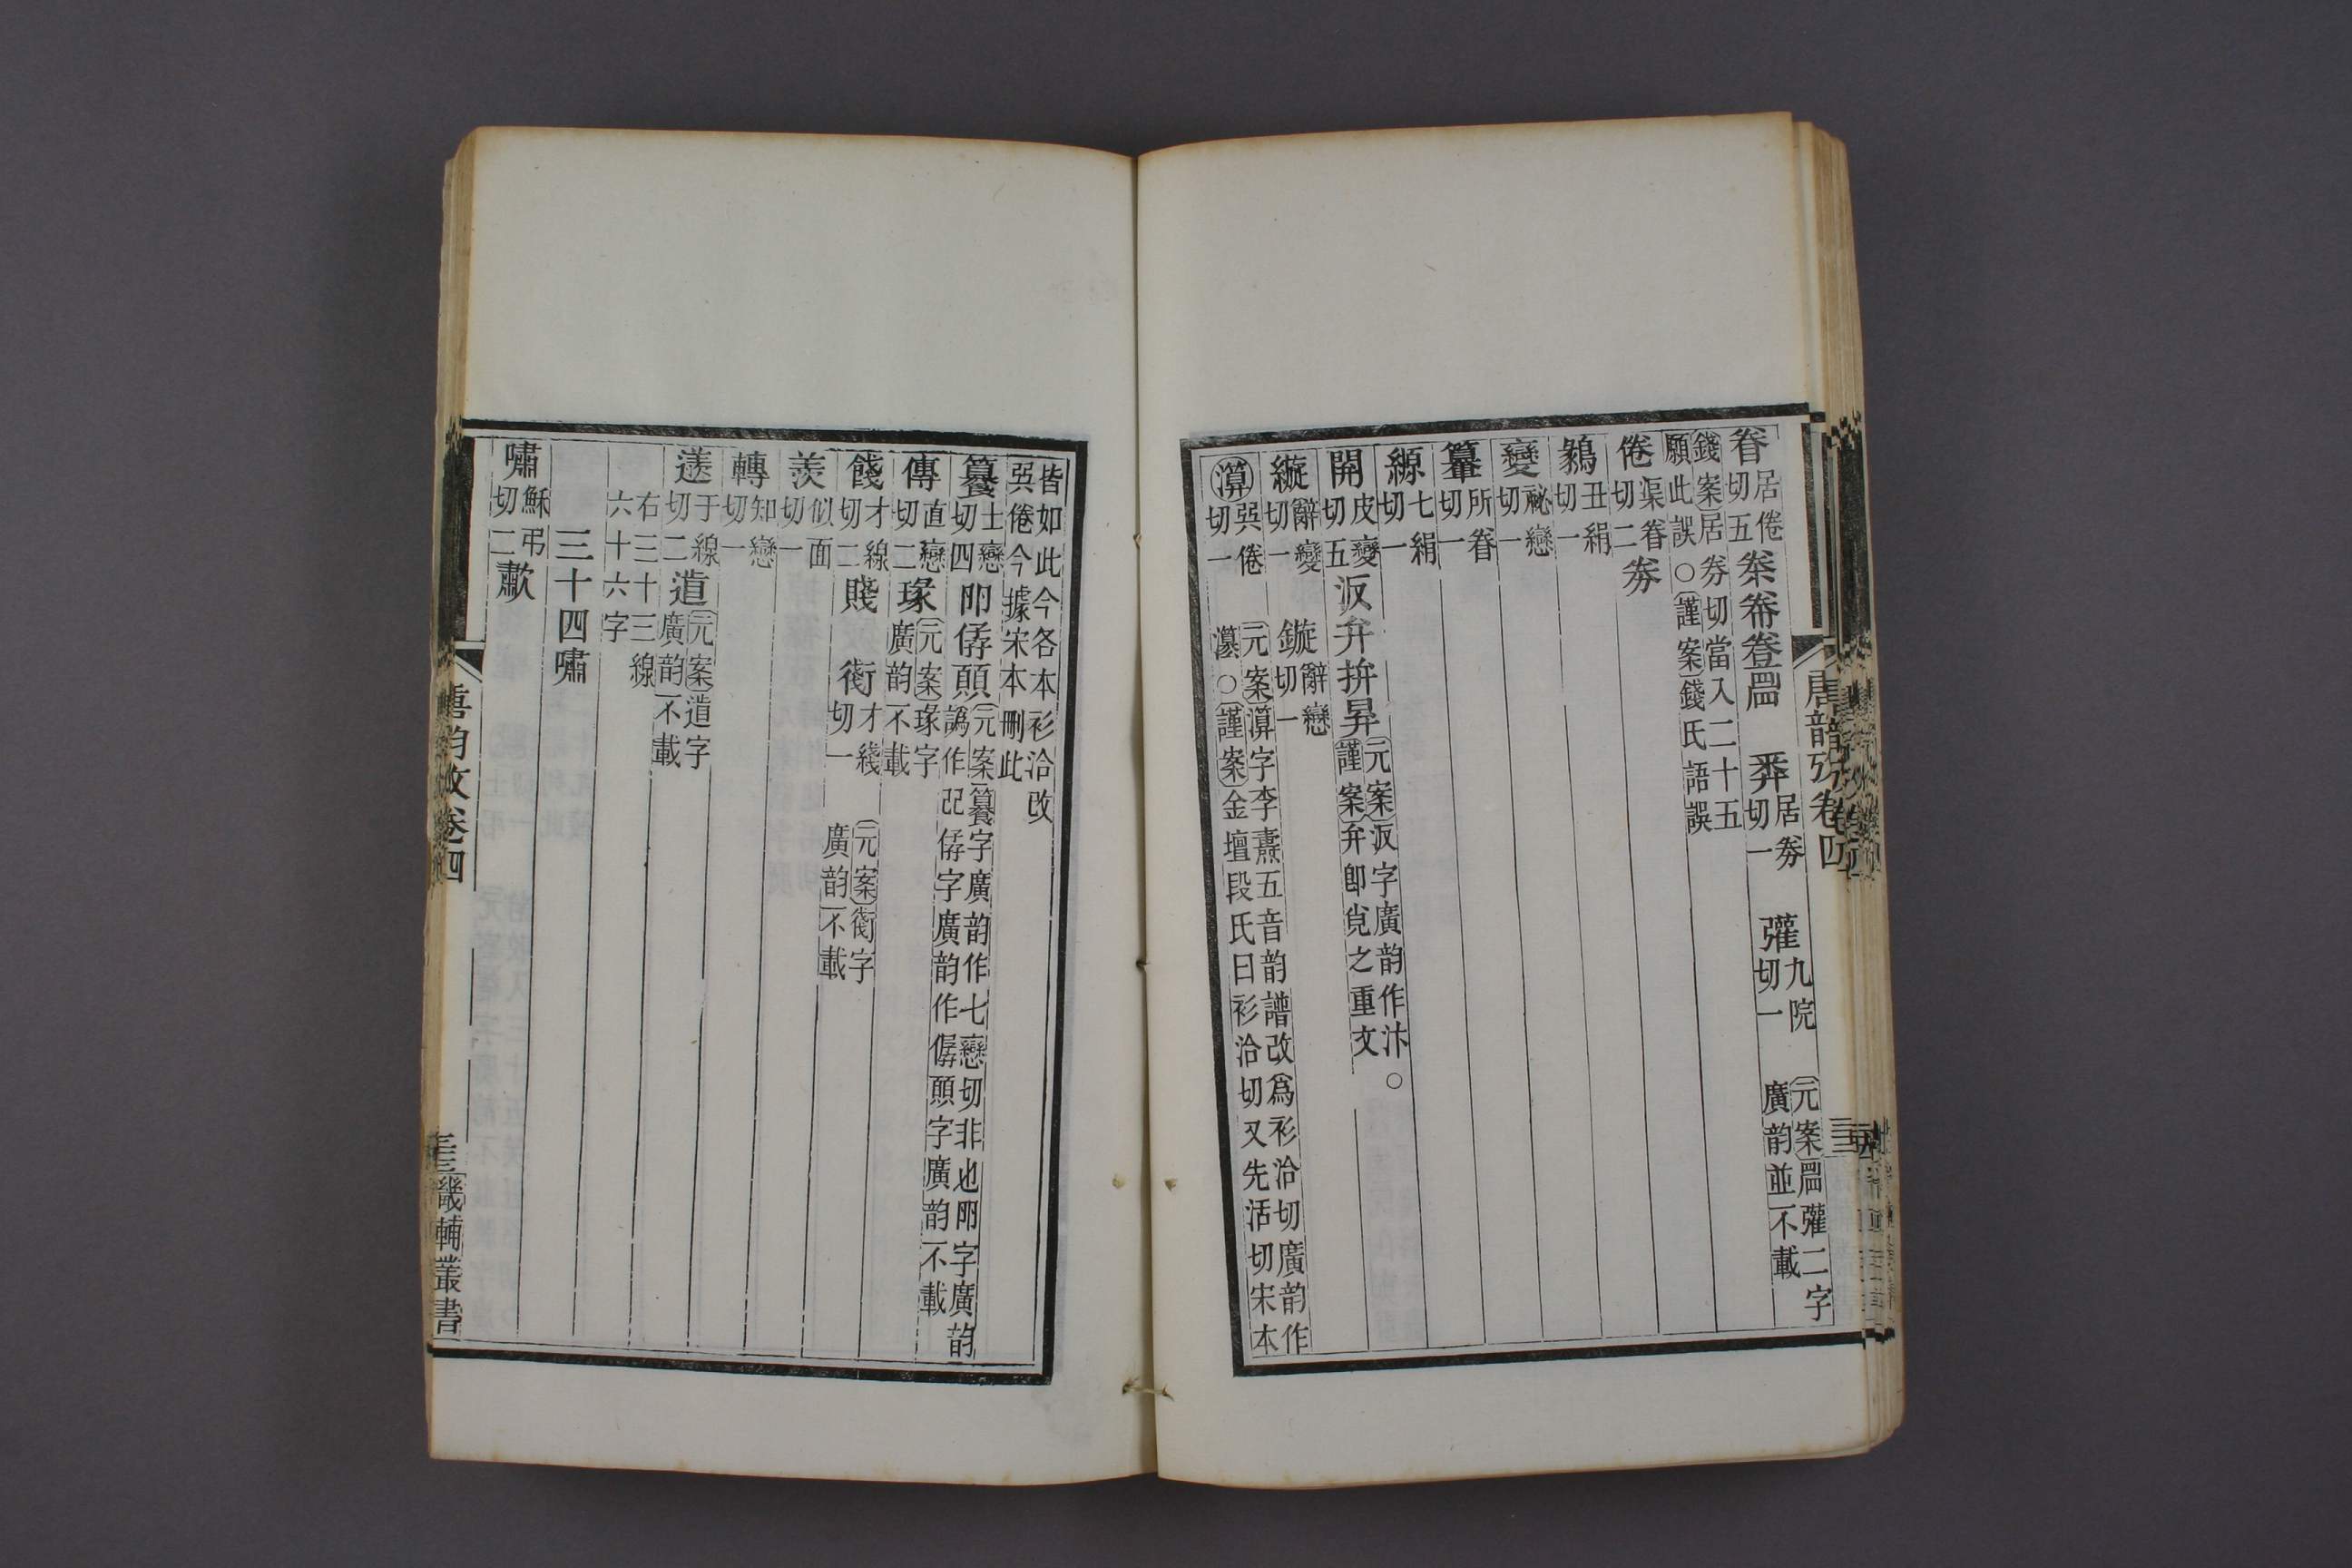 眷居倦切五𢍏帣䅈䀠 𢍏居劵切一 㢕九院切一 元案䀠㢕二字廣韵並不載
錢案居劵切當入二十五願此誤○謹案錢氏語誤
倦渠眷切二劵
鶨丑絹切一
變祕戀切一
䉵所眷切一
縓七絹切一
開皮變切五汳弁拚昪元案汳字廣韵作汴○謹案弁卽皃之重文
縼辭變切一 鏇辭戀切一
灊㢲倦切一 元案字李燾五音韵譜改爲衫洽切廣韵作灢○謹案金壇段氏曰衫洽切又先活切宋本
皆如此今各本衫洽改㢲倦今據宋本刪此
籑士戀切四㔾僝頵元案籑字廣韵作七戀切非也㔾字廣韵譌作㔾僝字廣韵作僝頵字廣韵不載
傳直戀切二瑑元案瑑字廣韵不載
餞才線切二賤 衘才綫切一 元案衘字廣韵不載
羨似面切一
轉知戀切一
䢫于線切二䢫元案䢫字廣韵不載
右三十三線六十六字
三十四嘯
嘯穌弔切二歗
唐韵攷卷四
畿輔叢書